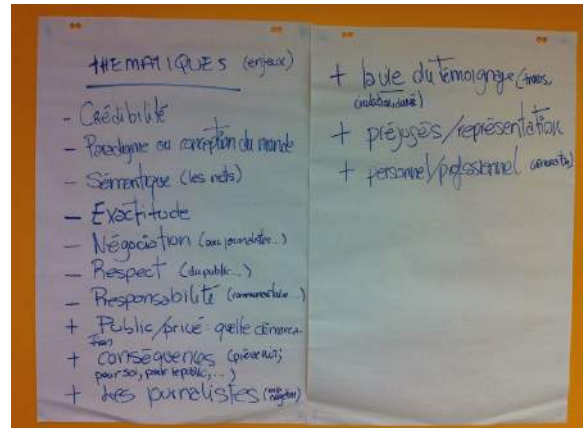 THEMATIQUES (enjeux)
- Crédibilité
- Paradigme ou conception du monde
- Sémantique (les mots)
- Exactitude
- Négociation (avec journalistes...)
- Respect (du public...)
- Responsabilité
+ Public/privé quelle démarca-
tion
+ conséquences (prévenir,
pour soi, pour le public, ...)
+ Les journalistes
+ la vie du témoignage (traces,
+ préjugés/représentation
+ personnel/professionnel